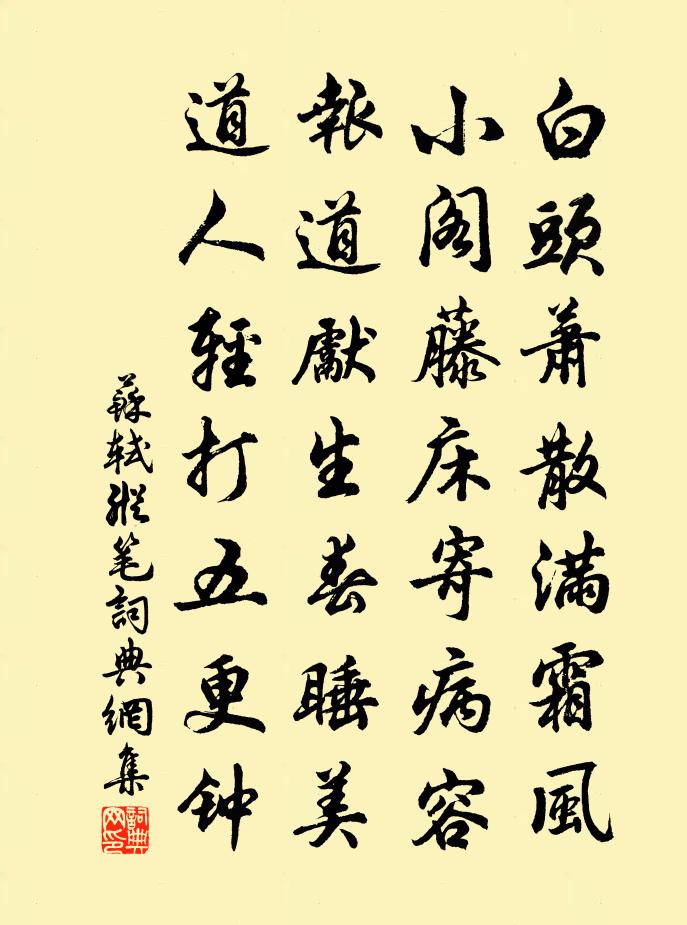 白頭蕭散滿霜風
小閣藤床寄病容
報道獻生春睡美
道人輕打五更钟
蘇軾縱笔詞典網集
詞典网印